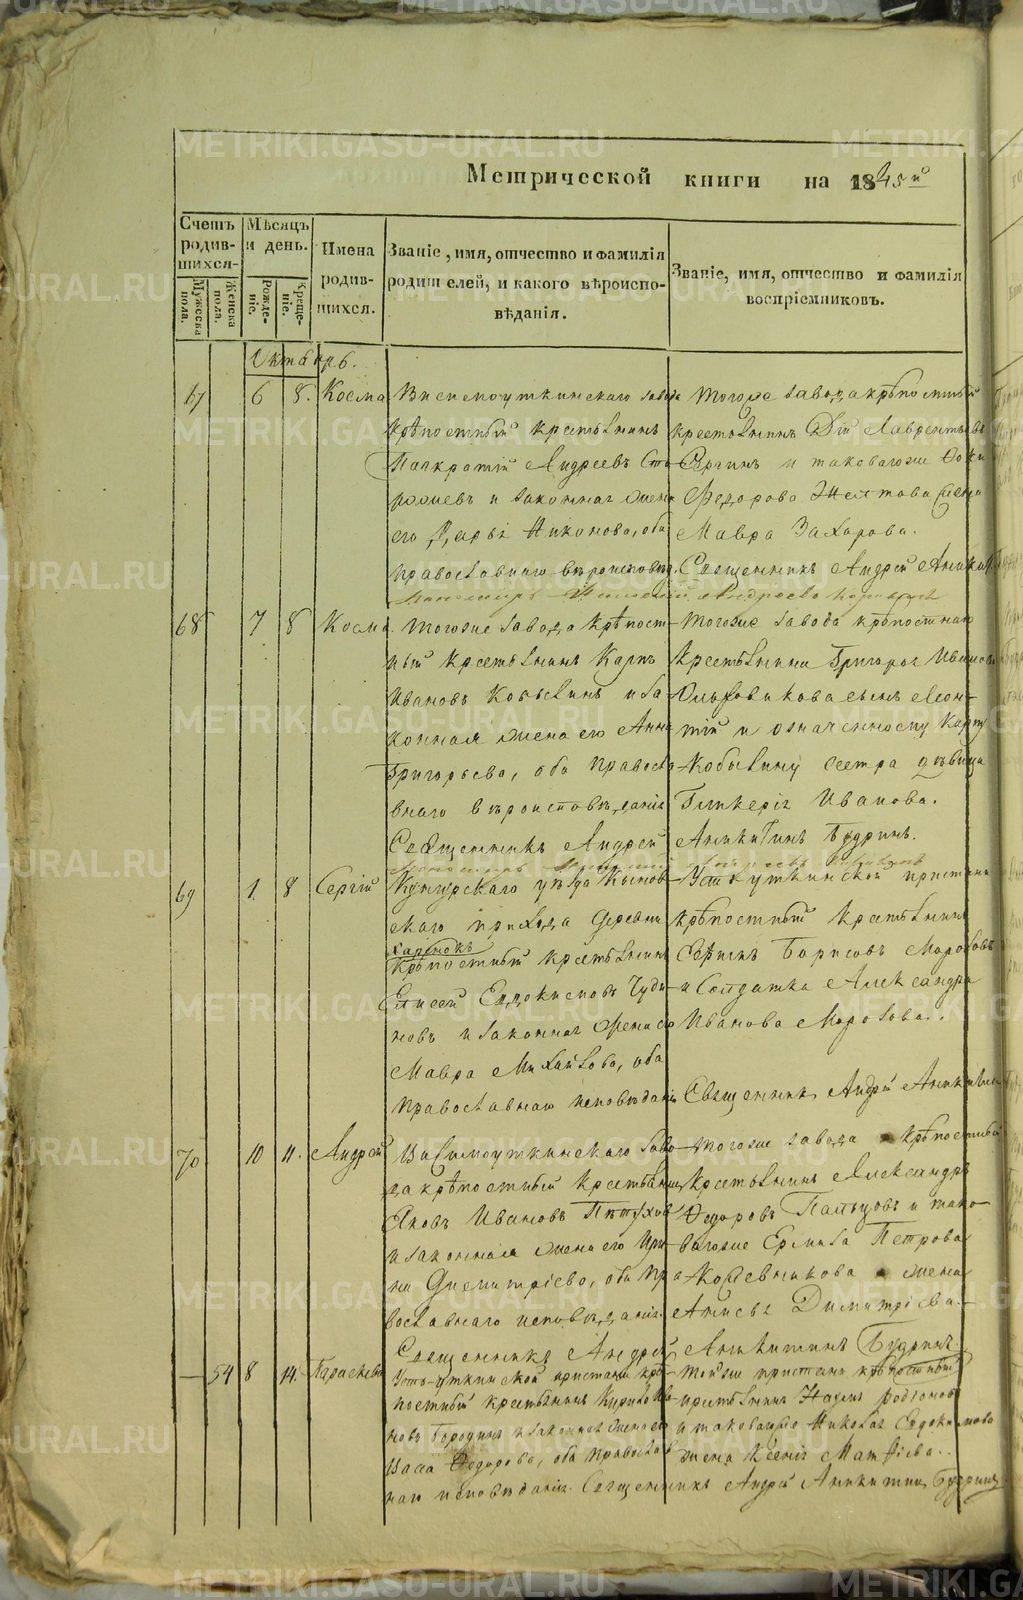 Метрической книги на 1845й
Счетъ родив-шихся.
Мужеска пола.
Женска пола.
Мѣсяцъ и день.
Рожде-ніе.
Креще-ніе.
Имена родив-шихся.
Званіе, имя, отчество и фамилія
родителей, и какого вѣроиспо-
вѣданія.
Званіе, имя, отчество и фамилія
воспріемниковъ.
Октябрь.
67 6 8. Косма
Висимоуткинскаго завода
крѣпостный крестьянинъ
Панкратій Андреевъ
и законная жена
его Дарья Никонова, оба
православнаго вѣроисповѣд.
Тогоже завода крѣпостный
крестьянинъ Дій Лаврентьевъ
и таковагоже
Федорова Желтова жена
Мавра Захарова.
Священникъ Андрей Аникит
68 7 8 Косма
Тогоже завода крѣпост-
ный крестьянинъ Карпъ
Ивановъ Кобылинъ и за-
конная жена его Анна
Григорьева, оба правосла-
внаго вѣроисповѣданія
Священникъ Андрей
Тогоже завода крѣпостнаго
крестьянина Григорья Иванова
Ольховикова сынъ Леон-
тій и означенному Карпу
Кобылину сестра дѣвица
Гликерія Иванова.
Аникитинъ Будринъ.
69 1. 8 Сергій
Кунгурскаго уѣзда Кынов-
скаго прихода деревни
крѣпостный крестьянинъ
Елисей Евдокимовъ Чуди-
новъ и законная жена его
Мавра Михайлова, оба
православнаго исповѣданія
Усть-уткинской пристани
крѣпостный крестьянинъ
Борисовъ Морозовъ
и солдатка Александра
Иванова Морозова.
Священникъ Андрей Аникитинъ
70 10 11. Андрей
Висимоуткинскаго заво-
да крѣпостный крестьянинъ
Яковъ Ивановъ Пѣтуховъ
и законная жена его Ири-
на Димитріева, оба пра-
вославнаго исповѣданія.
Священникъ Андрей
Тогоже завода крѣпостный
крестьянинъ Александръ
Федоровъ Пальцовъ и тако-
вагоже Ермила Петрова
Кожевникова жена
Анисья Димитріева.
Аникитинъ Будринъ
— 54 8 14. Параскева
Усть-уткинской пристани крѣ-
постный крестьянинъ Кирило Ива-
новъ Бородинъ и законная жена его
Федорова, оба православ-
наго исповѣданія. Священникъ Андрей Аникитинъ Будринъ
Тойже пристани крѣпостный
крестьянинъ Наумъ Родіоновъ
и таковагоже Николая Евдокимова
жена Ксенія Матфіева.
METRIKI.GASO-URAL.RU